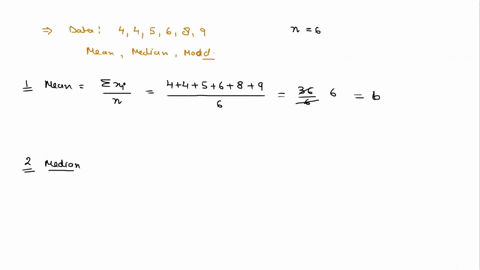 ⇒ Data: 4, 4, 5, 6, 8, 9 n = 6
Mean, Median, Modd.
1 Mean = Σxi/n = 4+4+5+6+8+9/6 = 36/6 6 = 6
2 Median